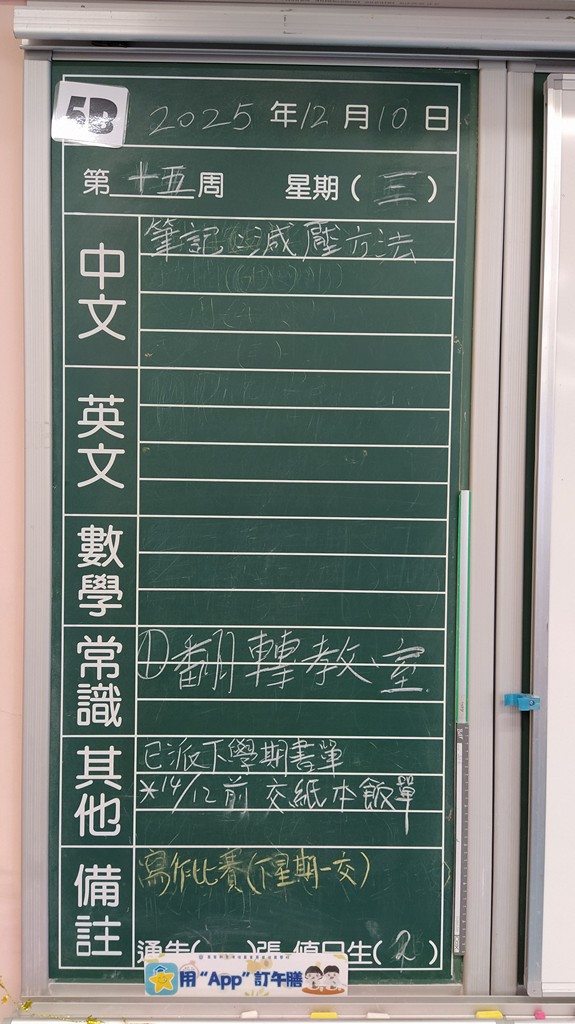 5B
2025年12月10日
第十五周 星期(三)
中文
筆記:減壓方法
英文
數學
常識
①翻轉教室
其他
已派下學期書單
*14/12前交紙本飯單
備註
寫作比賽(下星期一交)
通告( )張 值日生(2)
用“App”訂午膳